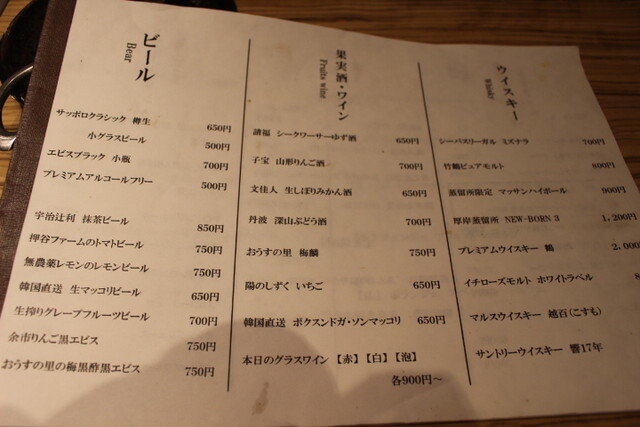 ビール
Bear
サッポロクラシック 樽生 650円
小グラスビール 500円
エビスブラック 小瓶 700円
プレミアムアルコールフリー 500円
宇治辻利 抹茶ビール 850円
押谷ファームのトマトビール 750円
無農薬レモンのレモンビール 750円
韓国直送 生マッコリビール 650円
生搾りグレープフルーツビール 700円
余市りんご黒エビス 750円
おうすの里の梅黒酢黒エビス 750円
果実酒・ワイン
Fruits wine
請福 シークワーサーゆず酒 650円
子宝 山形りんご酒 700円
文佳人 生しぼりみかん酒 650円
丹波 深山ぶどう酒 700円
おうすの里 梅麟 750円
陽のしずく いちご 650円
韓国直送 ボクスンドガ・ソンマッコリ 650円
本日のグラスワイン 【赤】【白】【泡】
各900円～
ウイスキー
シーバスリーガル ミズナラ 700円
竹鶴ピュアモルト 800円
蒸留所限定 マッサンハイボール 900円
厚岸蒸留所 NEW-BORN 3 1,200円
プレミアムウイスキー 鶴 2,000
イチローズモルト ホワイトラベル
マルスウイスキー 越百(こすも)
サントリーウイスキー 響17年